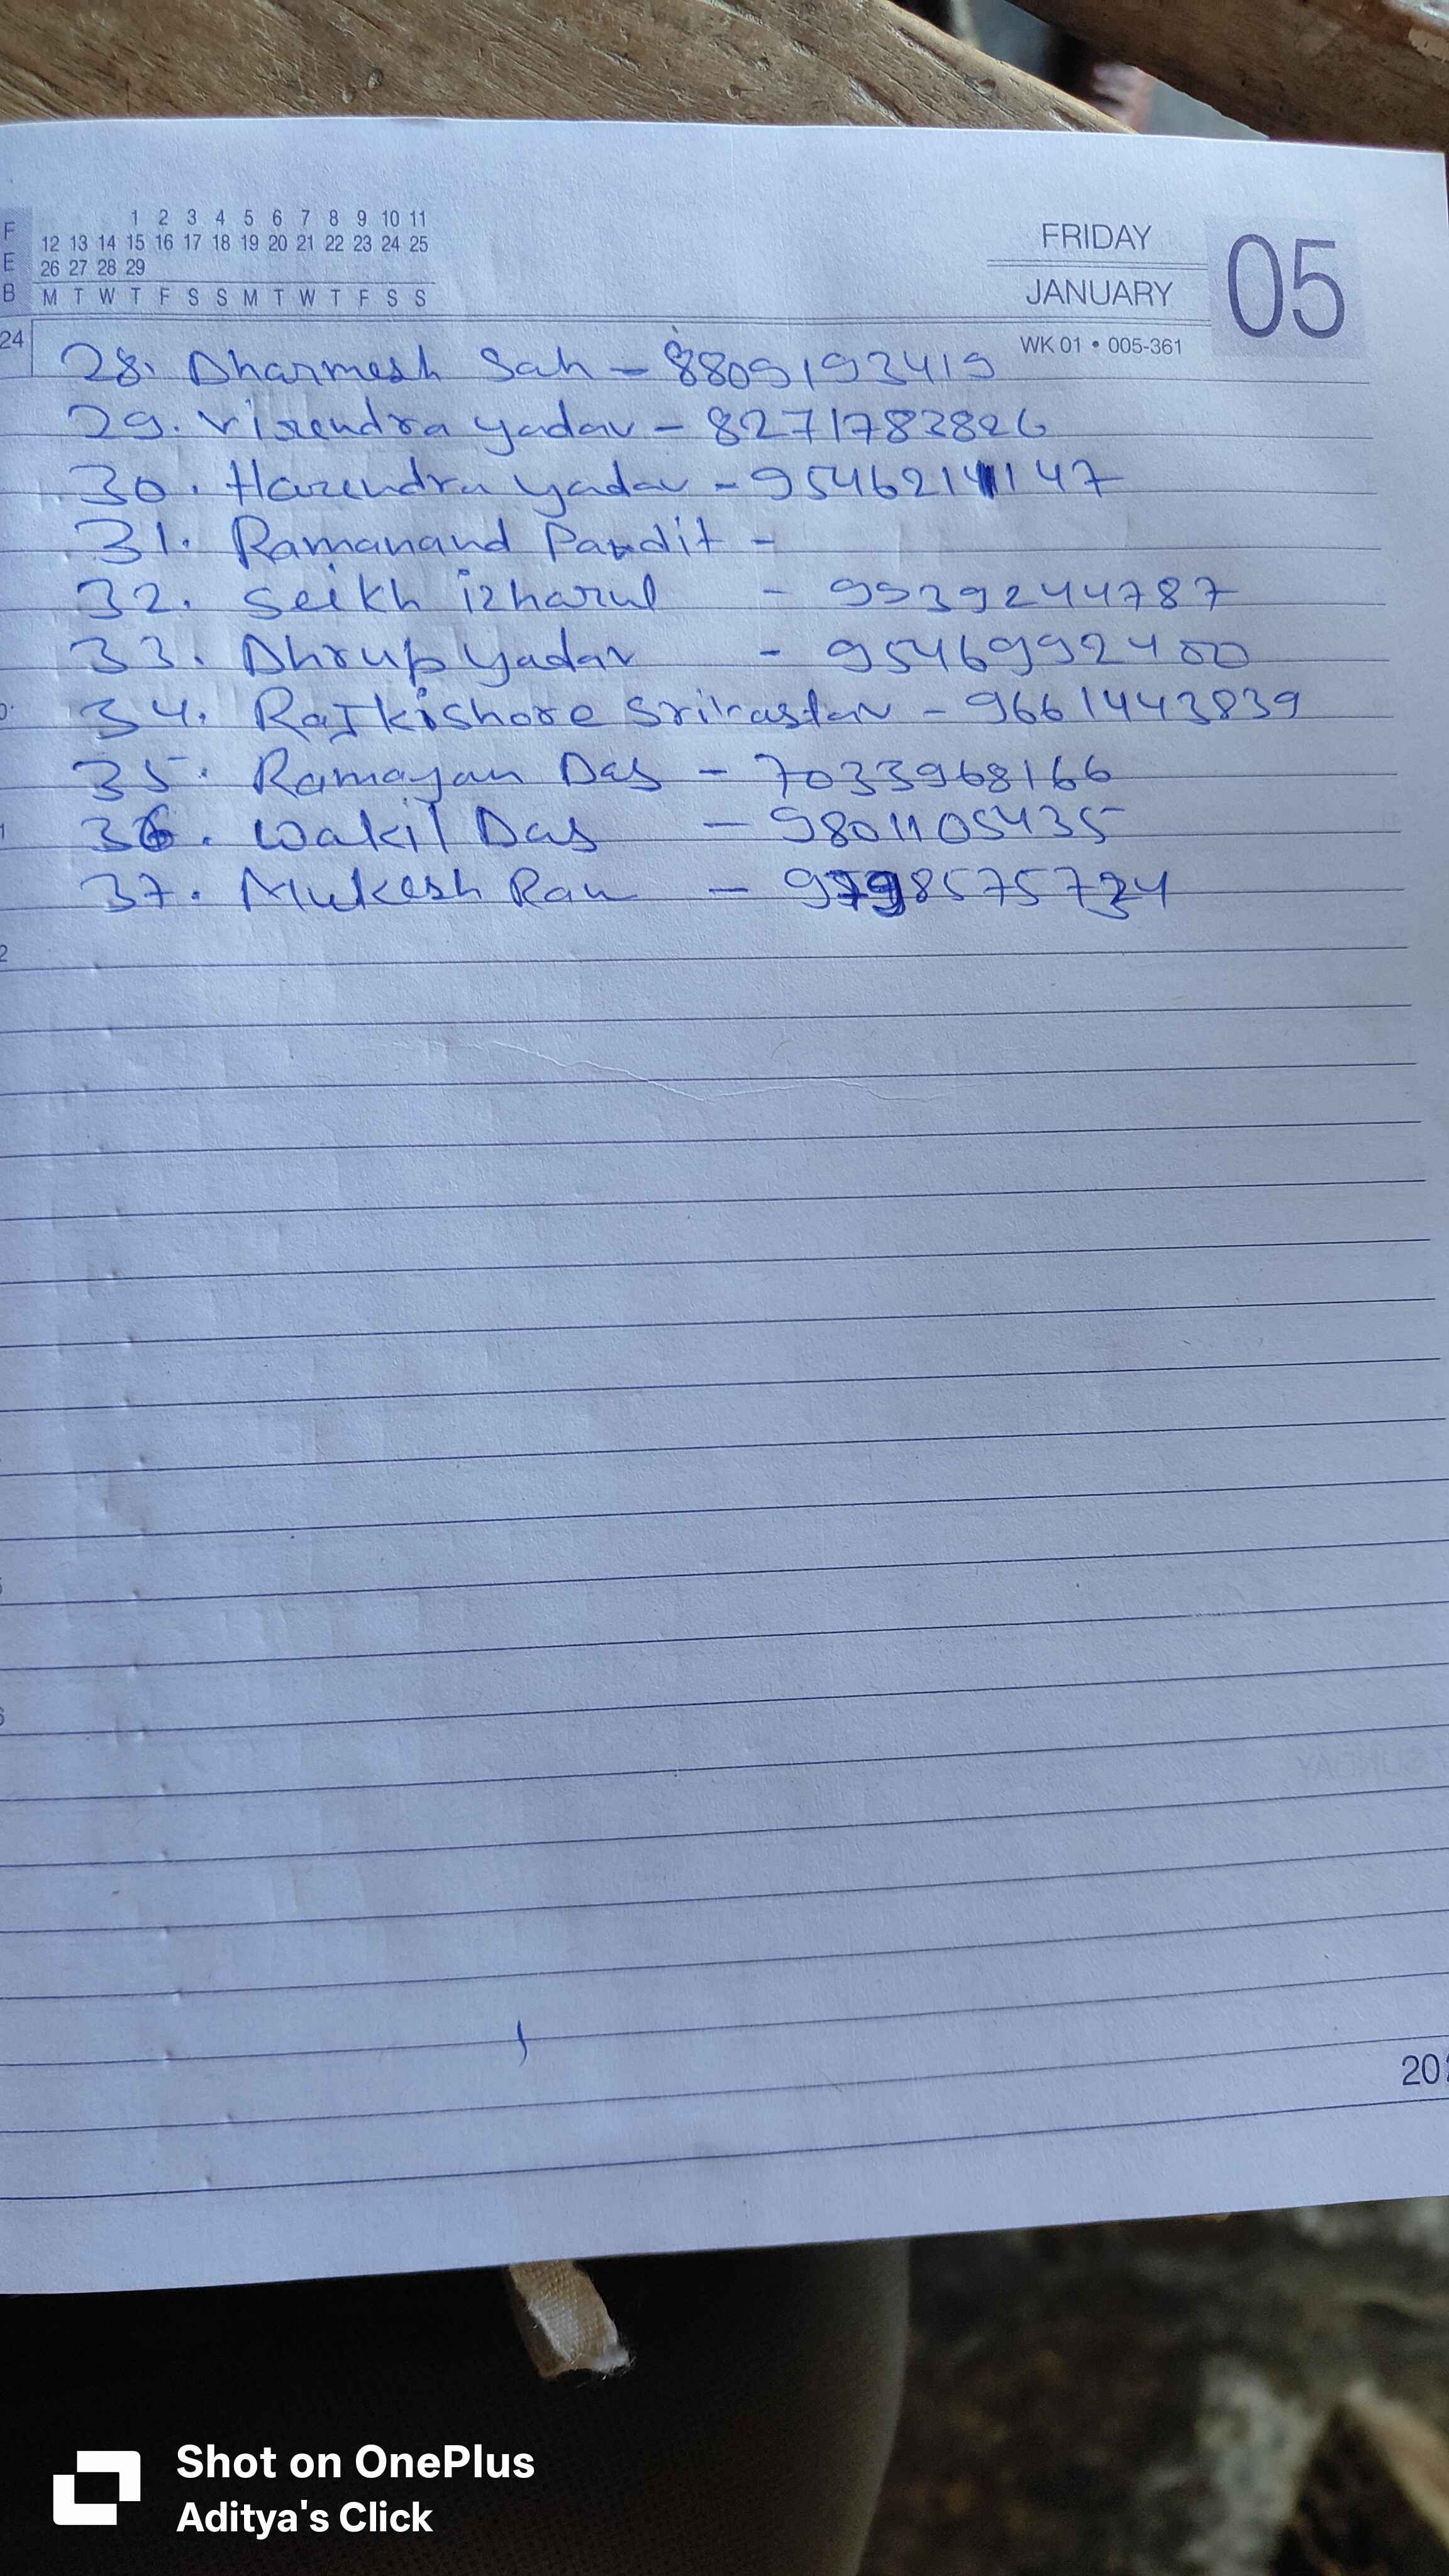 1 2 3 4 5 6 7 8 9 10 11
F
12 13 14 15 16 17 18 19 20 21 22 23 24 25
E
26 27 28 29
B
M T W T F S S M T W T F S S
24
FRIDAY
JANUARY
05
WK 01 • 005-361
28. Dharmesh Sah - 8809193419
29. Virendra yadav - 8271783826
30. Harendra yadav - 9546214147
31. Ramanand Pandit -
32. Seikh izharul - 9939244787
33. Dhrup yadav - 9546992400
34. Rajkishore Srivastav - 9661443839
35. Ramayan Das - 7033968166
36. Wakil Das - 9801105435
37. Mukesh Ram -
SUNDAY
Shot on OnePlus
Aditya's Click